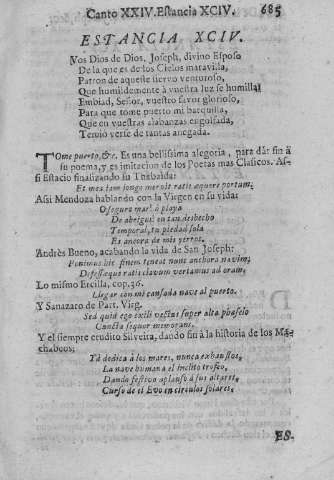 Canto XXIV. Estancia XCIV. 685
ESTANCIA XCIV.
Vos Dios de Dios, Joseph, divino Esposo
De la que es de los Cielos maravilla,
Patron de aqueste siervo venturoso,
Que humildemente à vuestra luz se humilla:
Embiad, Señor, vuestro favor glorioso,
Para que tome puerto mi barquilla,
Que en vuestras alabanzas engolfada,
Temiò verse de tantas anegada.
Tome puerto, &c. Es una bellissima alegoria, para dàr fin à
su poema, y es imitacion de los Poetas mas Clasicos. As-
si Estacio finalizando su Thebaida:
Et mea iam longo meruit ratis æquore portum.
Assi Mendoza hablando con la Virgen en su vida:
O seguro mar! ò playa
De abrigo! en tan deshecho
Temporal, tu piedad sola
Es ancora de mis yerros.
Andrès Bueno, acabando la vida de San Joseph:
Ponimus hic finem teneat nunc anchora navim;
Defessæque ratis clavum vertamus ad oram,
Lo mismo Ercilla, cop. 36.
Llegar con mi cansada nave al puerto.
Y Sanazaro de Part. Virg.
Sed quid ego exili vectus super alta phaselo
Cuncta sequor memorans.
Y el siempre erudito Silveira, dando fin à la historia de los Ma-
chabeos:
Yà dedica à los mares, nunca exhaustos,
La nave humana el inclito trofeo,
Dando festivo aplauso à sus altares,
Curso de el Evo en circulos solares.
ES-